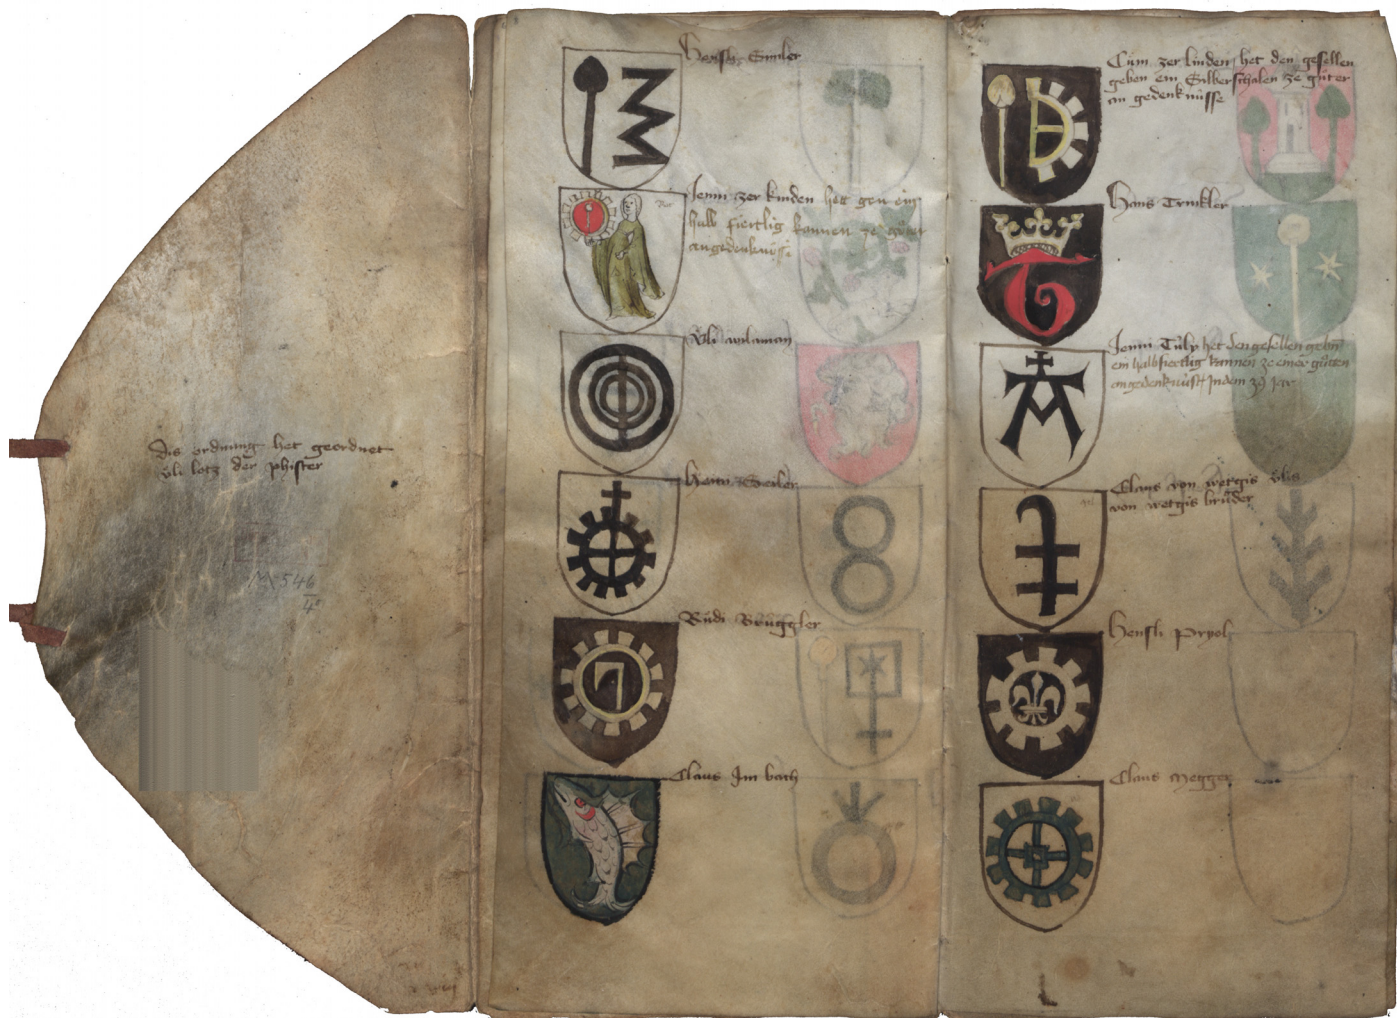 Dis ordnung het geordnet
ůli lotz der phister
M 546
4°
Hensly Simler
Jenni zer kinden het gen ein
halb fiertlig kannen ze gůter
angedenknüssi
Ůli wilaman
Heini Seiler
Růdi Brüggler
Claus Im bach
Cůni zer linden het den gesellen
geben ein Silberschalen ze gůter
an gedenknüsse
Hans Trinkler
Jenni Tüly het den gesellen gebn
ein halbfiertlig kannen ze einer gůten
angedenknüsse In dem 39 jar
Claus von wetgis ůlis
von wetgis brůder
Hensli Pryol
Claus Metzger